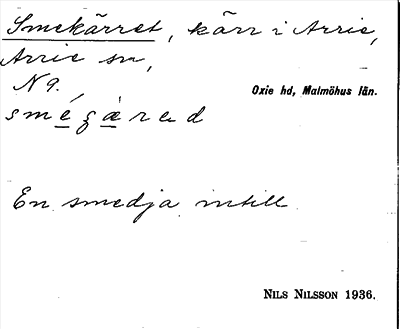 Smekärret, kärr i Arrie,
Arrie sn,
N 9.
Oxie hd, Malmöhus län.
smégæred
En smedja intill
NILS NILSSON 1936.